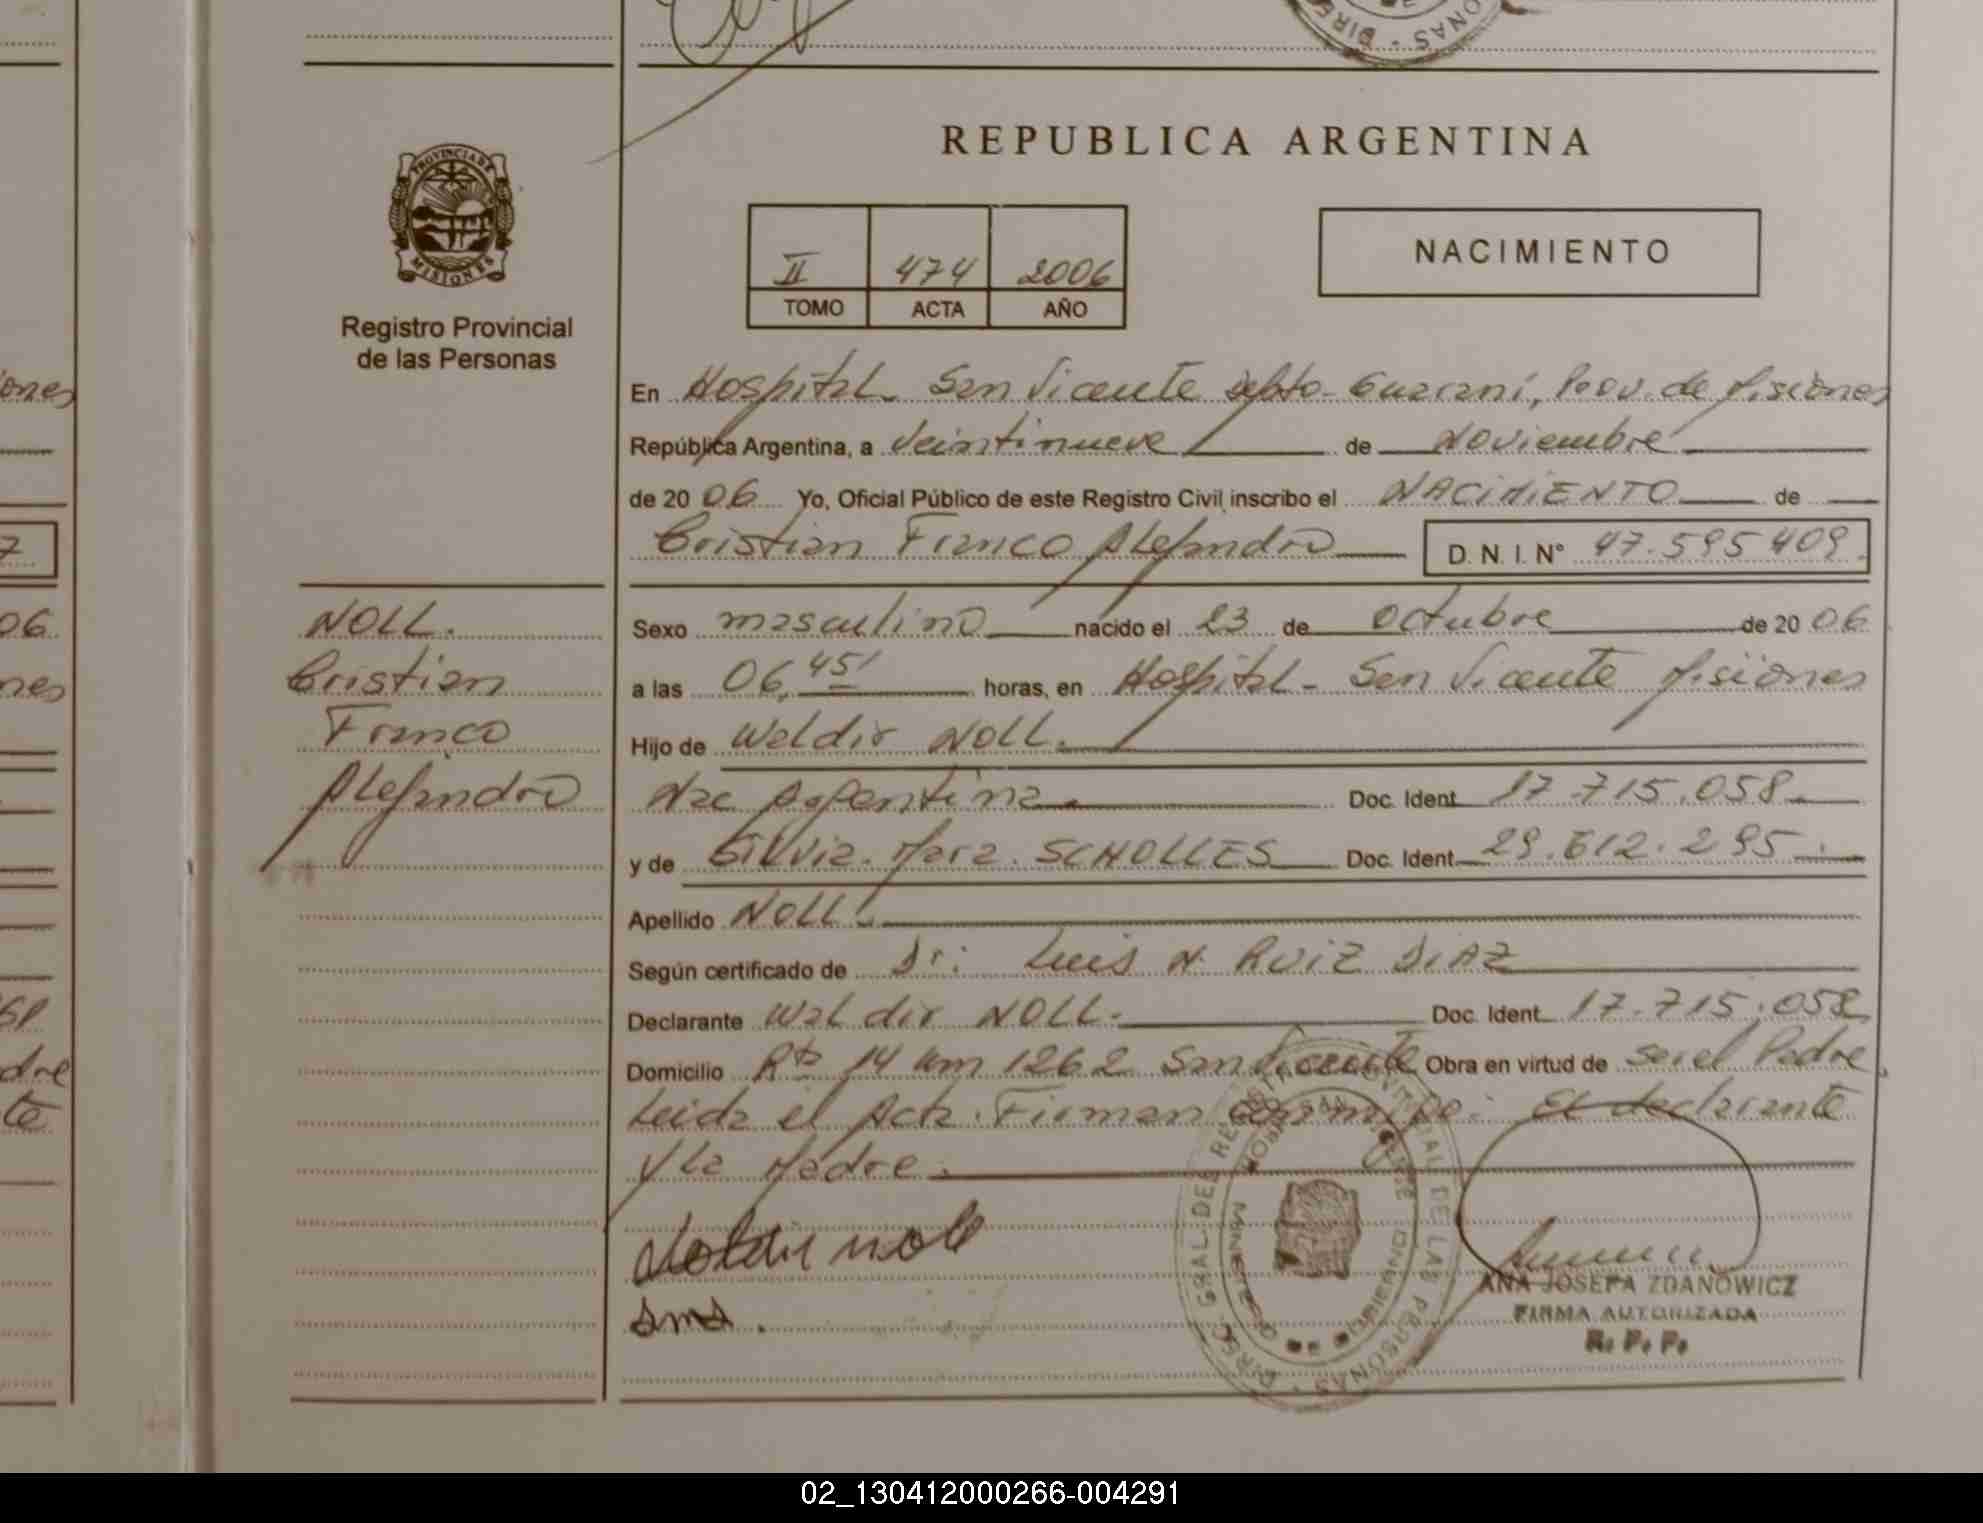 REPUBLICA ARGENTINA
PROVINCIA DE
MISIONES
Registro Provincial
de las Personas
II 474 2006
TOMO ACTA AÑO
NACIMIENTO
En Hospital San Vicente Depto. Guaraní, Prov. de Misiones
República Argentina, a veintinueve de Noviembre
de 20 06 Yo, Oficial Público de este Registro Civil inscribo el NACIMIENTO de
Cristian Franco Alejandro D.N.I. N° 47.595.409.
NOLL.
Cristian
Franco
Alejandro
Sexo masculino nacido el 23 de Octubre de 20 06
a las 06,45' horas, en Hospital - San Vicente Misiones
Hijo de Waldir NOLL.
Nac Argentina. Doc. Ident. 17.715.058.
y de Silvia. Mara. SCHOLLES Doc. Ident. 29.612.295.
Apellido NOLL.
Según certificado de Dr. Luis N. RUIZ DIAZ
Declarante Waldir NOLL. Doc. Ident. 17.715.058
Domicilio Rta 14 km 1262 San Vicente Obra en virtud de ser el Padre
Leida el Acta. Firman conmigo: El declarante
y la Madre.
Waldir noll
sms.
ANA JOSEFA ZDANOWICZ
FIRMA AUTORIZADA
R. P. P.
02_130412000266-004291